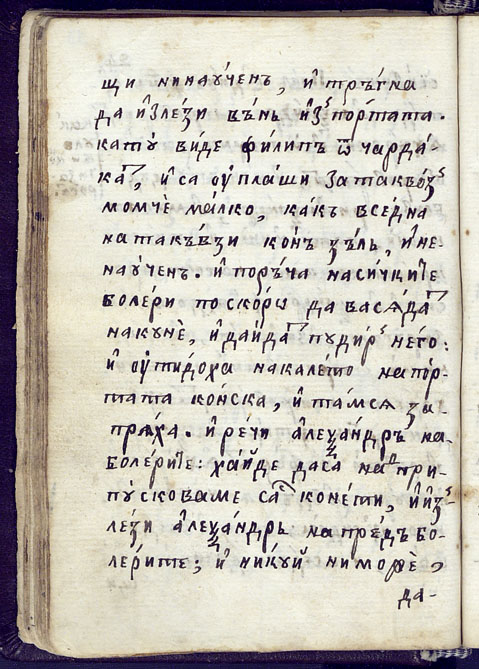 щи нинаꙋ́ченъ, и҆ тръ́гна
да и҆зле́зи въ́нь и҆зʼ по́ртата.
като̀ ви́де фили́пъ ѿ чарда́-
ка, и҆ са ѹ҆пла́ши за такво́зʼ
момчѐ ма́лко, ка́къ все́дна
на такъ́взи ко́нь ѕъ́лъ, и҆ не-
наꙋ́ченъ. и҆ поръ́ча на си́чките
боле́ри по ско́рѡ да васѧ́датъ
на кꙋнѐ, и҆ да и҆́датъ пꙋди́рʼ не́го:
и҆ ѹ҆ти́доха на кале́то на по́р-
тата ко́нска, и҆ та́мсѧ за-
прѧ́ха. и҆ ре́чи а҆леѯа́ндръ на
боле́рите: ха́йде даса̀ надпри-
пꙋ́сковаме съ коне́ти, и҆ и҆зʼ-
ле́зи а҆леѯа́ндръ на пре́дъ бо-
ле́рите; и҆ ни́кꙋй ни море̏,
да-